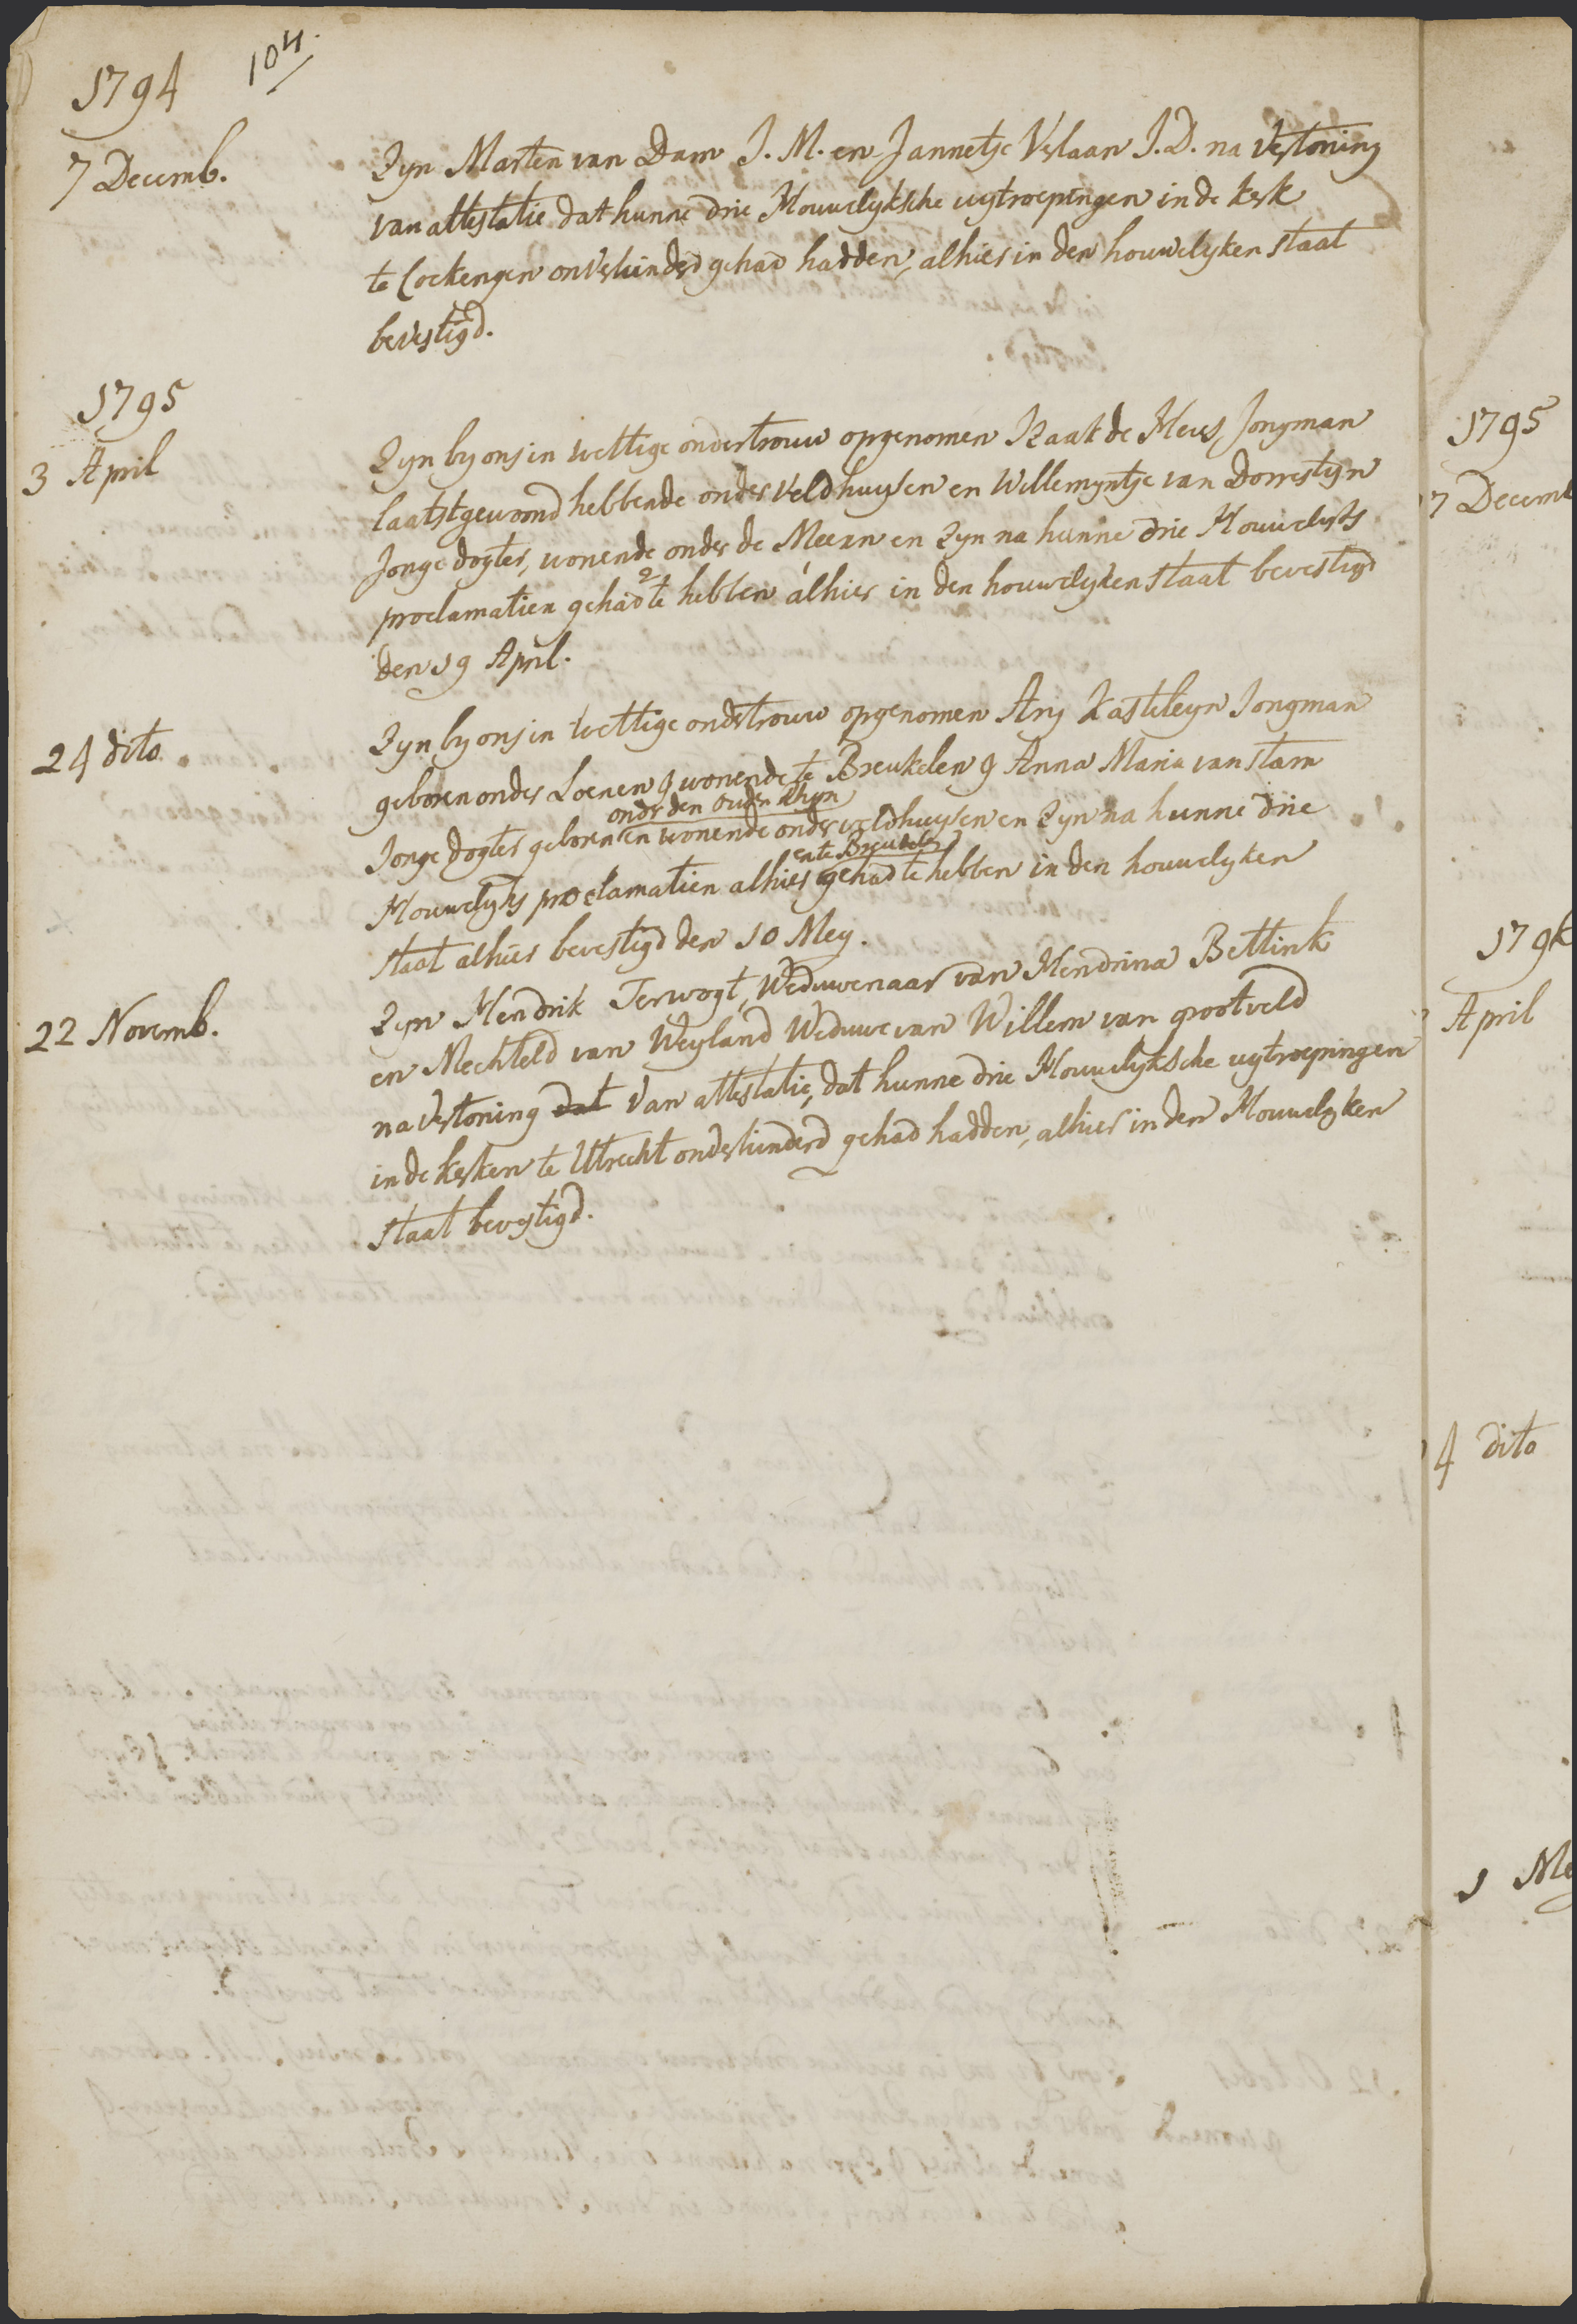 104.
1794
7 Decemb.
Zyn Marten van Dam J. M. en Jannetje Verlaan J. D. na vertoning
van attestatie dat hunne drie Houwelyksche uytroepingen in de kerk
te Cockengen onverhinderd gehad hadden, alhier in den houwelyken staat
bevestigd.
1795
3 April
Zyn by ons in wettige ondertrouw opgenomen Izaak de Heus, Jongman
laatst gewoond hebbende onder Veldhuysen en Willemyntje van Dorrestyn
Jonge dogter, wonende onder de Meern en zyn na hunne drie Houwelyks
proclamatien gehad te hebben alhier in den houwelyken staat bevestigd
den 19 April.
24 dito
Zyn by ons in wettige ondertrouw opgenomen Ary Kasteleyn Jongman
geboren onder Loenen & wonende te Breukelen & Anna Maria van Stam
onder den Ouden Rhyn
Jonge dogter geboren en wonende onder Veldhuysen en zyn na hunne drie
en te Breukelen
Houwelyks proclamatien alhier gehad te hebben in den houwelyken
staat alhier bevestigd den 10 Mey.
22 Novemb.
Zyn Hendrik Terwogt, Weduwenaar van Hendrina Bettink
en Mechteld van Weyland Weduwe van Willem van grootveld
na vertoning dat van attestatie, dat hunne drie Houwelyksche uytroepingen
in de kerken te Utrecht onderhinderd gehad hadden, alhier in den Houwelyken
staat bevestigd.
1795
7 Decemb
179
April
4 dito
1 Me